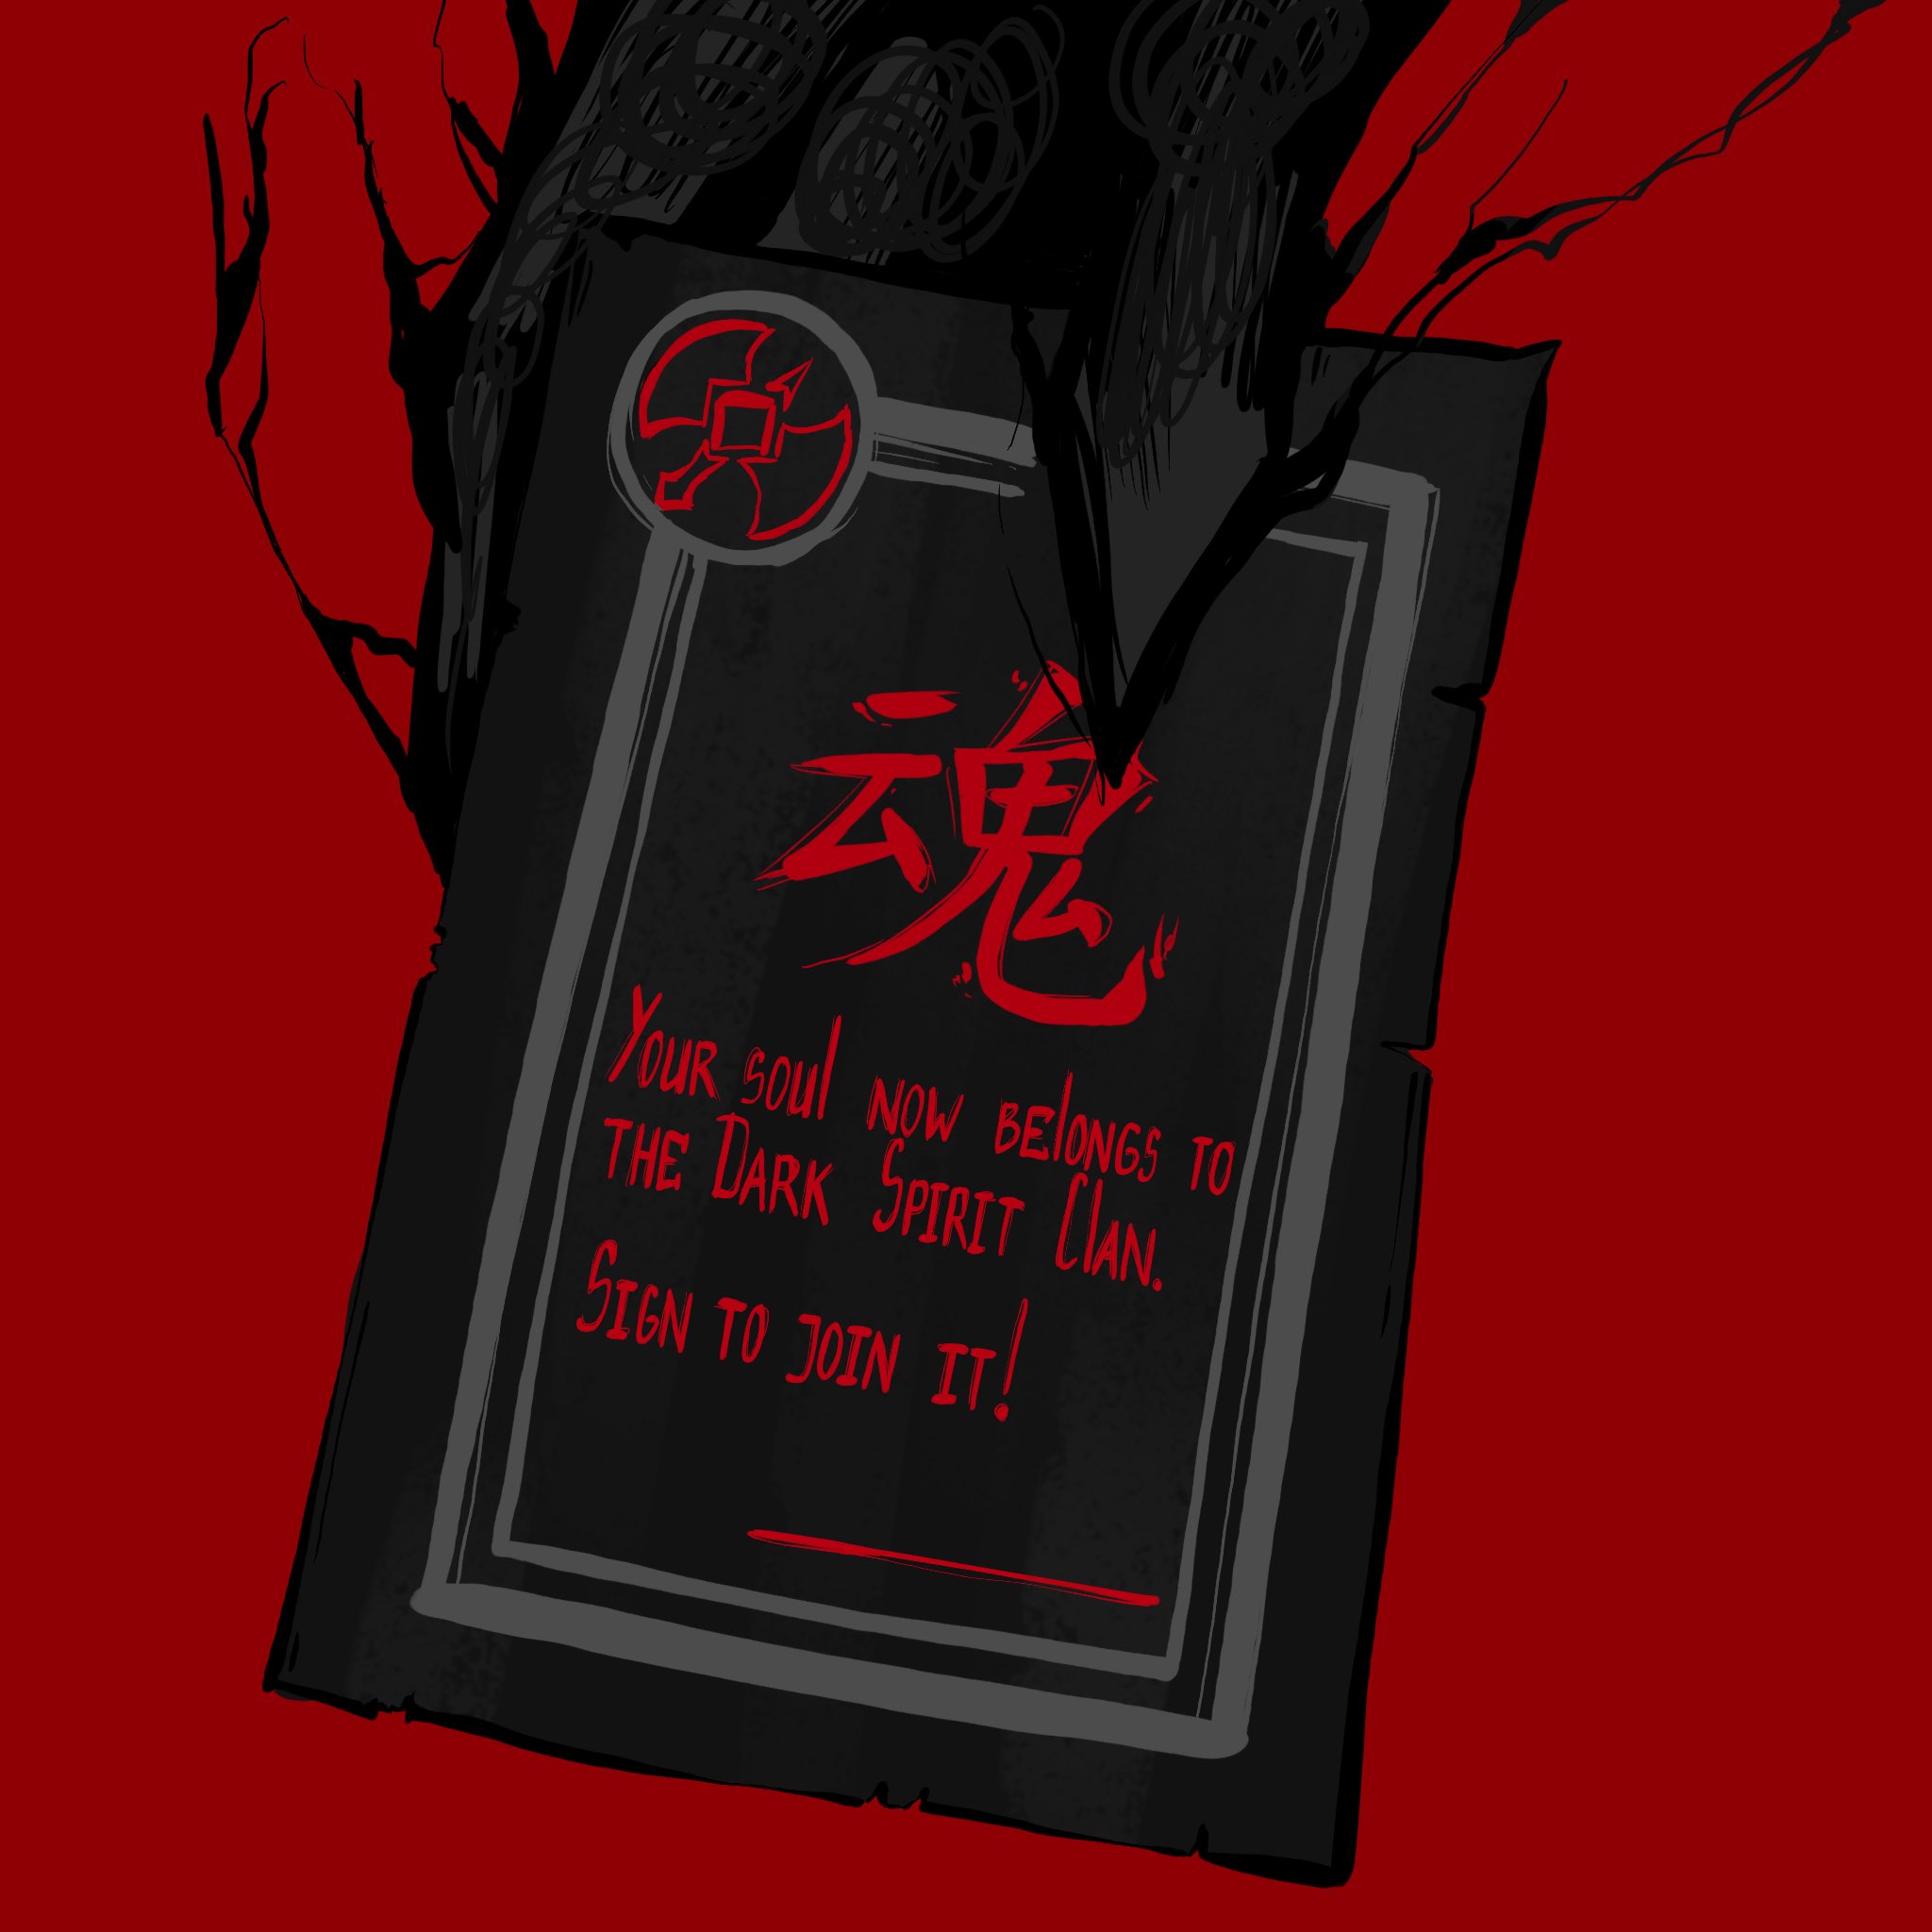 魂
Your soul now belongs to
the Dark Spirit Clan.
Sign to join it!